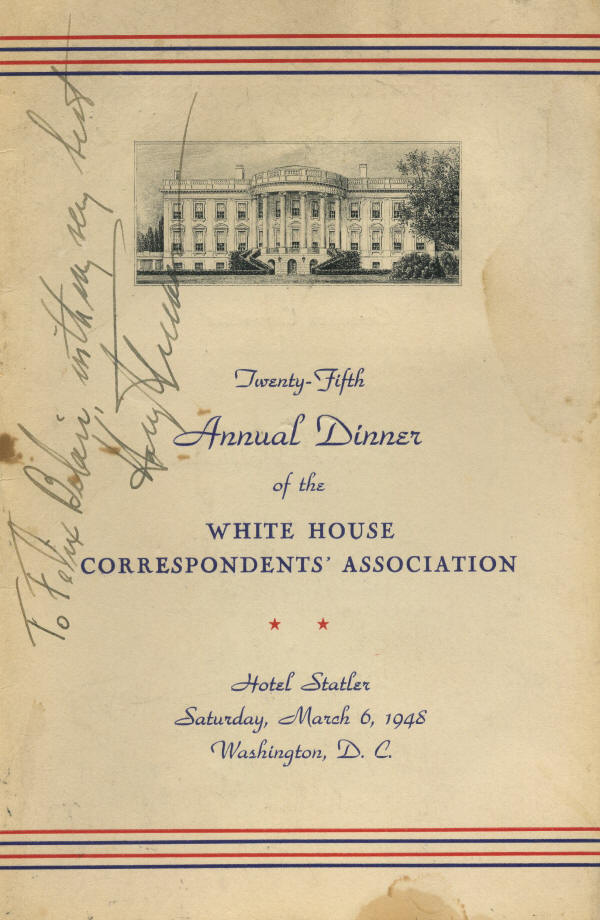 Twenty-Fifth
Annual Dinner
of the
WHITE HOUSE
CORRESPONDENTS' ASSOCIATION
Hotel Statler
Saturday, March 6, 1948
Washington, D. C.
To Felix Belair, with my very best
Harry Truman